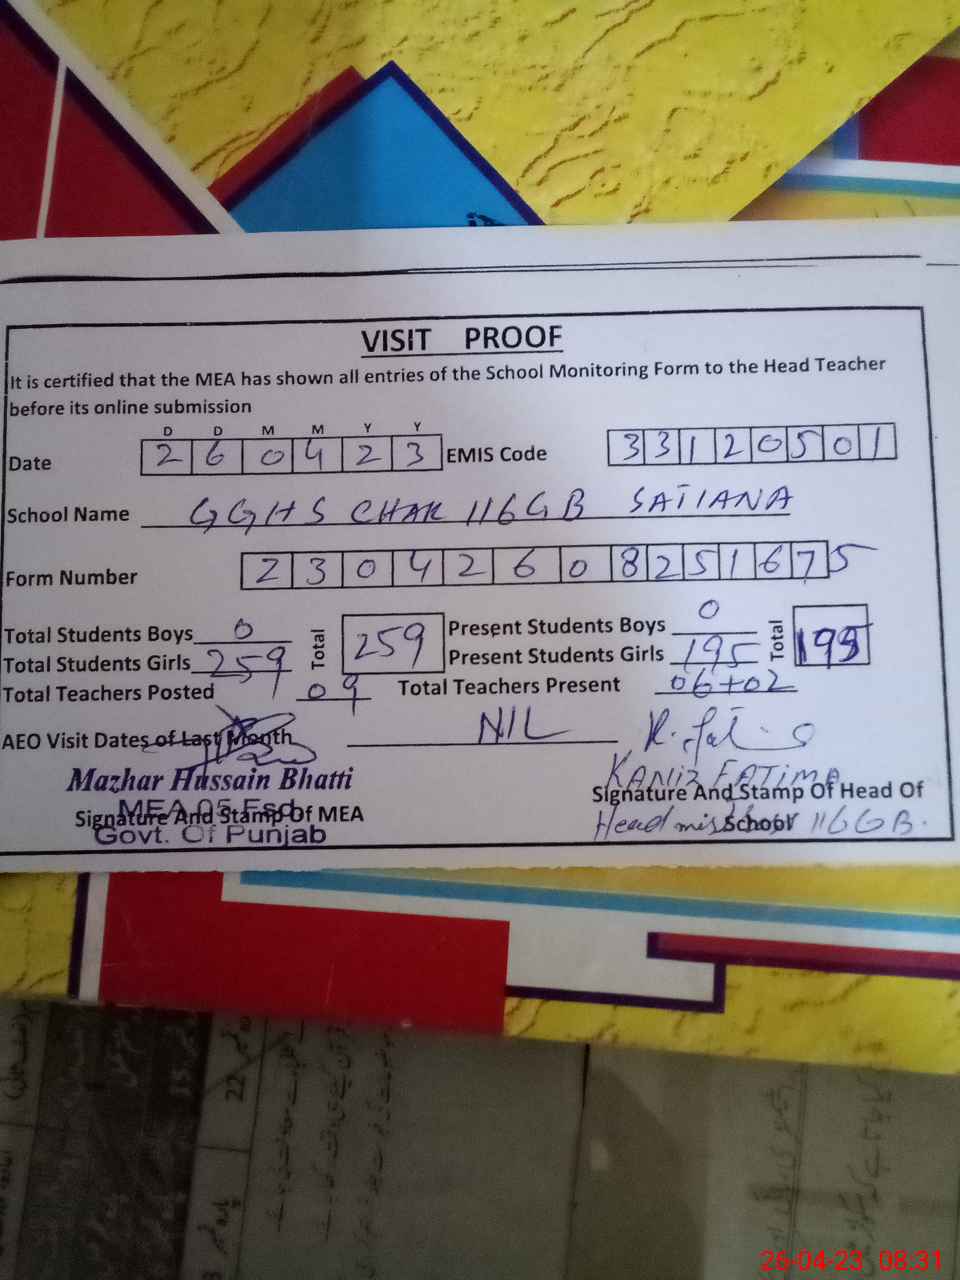 VISIT PROOF
It is certified that the MEA has shown all entries of the School Monitoring Form to the Head Teacher
before its online submission
D D M M Y Y
Date 2 6 0 4 2 3 EMIS Code 3 3 1 2 0 5 0 1
School Name GGHS CHAK 116GB SATIANA
Form Number 2 3 0 4 2 6 0 8 2 5 1 6 7 5
Total Students Boys 0 Total 259 Present Students Boys 0 Total 195
Total Students Girls 259 Present Students Girls 195
Total Teachers Posted 09 Total Teachers Present 06+02
AEO Visit Dates of Last Month NIL
Mazhar Hussain Bhatti KANIZ FATIMA
MEA 05 Fsd
Signature And Stamp Of MEA Signature And Stamp Of Head Of
School
Govt. Of Punjab Headmistress 116GB.
22
26-04-23 08:31